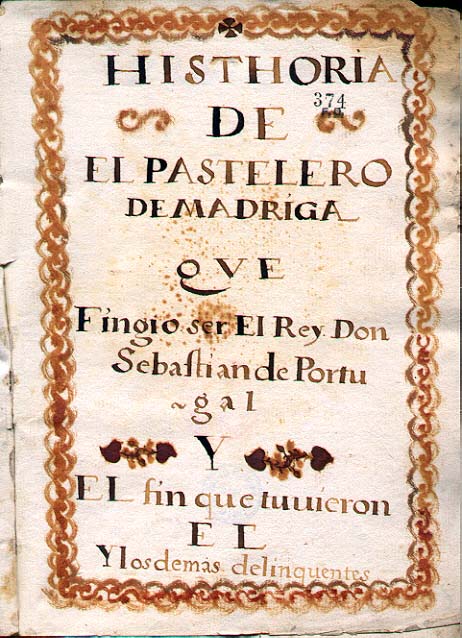 HISTHORIA
374
DE
EL PASTELERO
DE MADRIGA
QVE
Fingio ser El Rey Don
Sebaſtian de Portu
~gal
Y
EL fin que tuuieron
EL
Y los demàs delinquentes